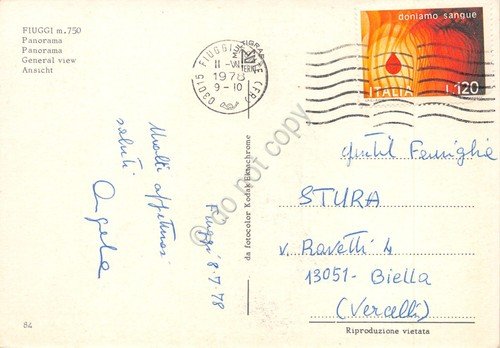 FIUGGI m. 750
Panorama
Panorama
General view
Ansicht
03015 FIUGGI TERME (FR)
11-VII
1978
9-10
doniamo sangue
ITALIA
L.120
Molti affettuosi
saluti
Angela
Fiuggi 8.7.78
da fotocolor Kodak Ektachrome
Gentil Famiglia
STURA
v. Ravetti 4
13051- Biella
(Vercelli)
84
Riproduzione vietata
© do not copy